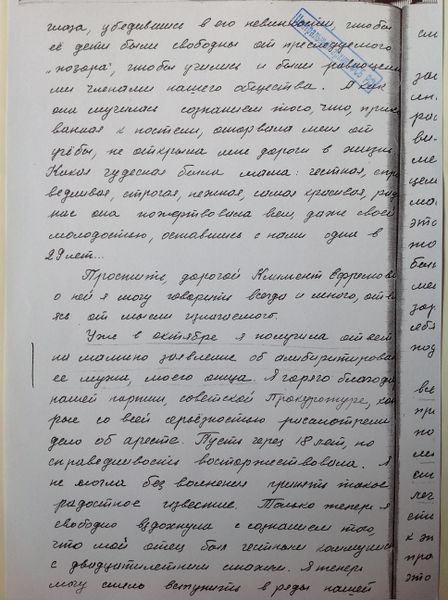 глаза, убедившись в его невинности, чтобы
её дети были свободны от преследуемого
„позора“, чтобы учились и были равноценны
ми членами нашего общества. А как
она мучилась сознанием того, что, прико
ванная к постели, оторвала меня от
учёбы, не открыла мне дороги в жизнь
Какая чудесная была мама: честная, спра
ведливая, строгая, нежная, самая красивая, ради
нас она пожертвовала всем, даже своей
молодостью, оставшись с нами одна в
29 лет...
Простите, дорогой Климент Ефремович
о ней я могу говорить всегда и много, отв
ясь от мысли излагаемого.
Уже в октябре я получила ответ
на мамино заявление об амбиритирован
её мужа, моего отца. Я горячо благода
нашей партии, советской Прокуратуре, кото
рые со всей серьёзностью рассмотрели
дело об аресте. Пусть через 18 лет, но
справедливость восторжествовала. Я
не могла без волнения принять такое
радостное известие. Только теперь я
свободно вздохнула с сознанием того,
что мой отец был честным коммунис
с двадцатилетним стажем. Я теперь
могу смело вступить в ряды нашей